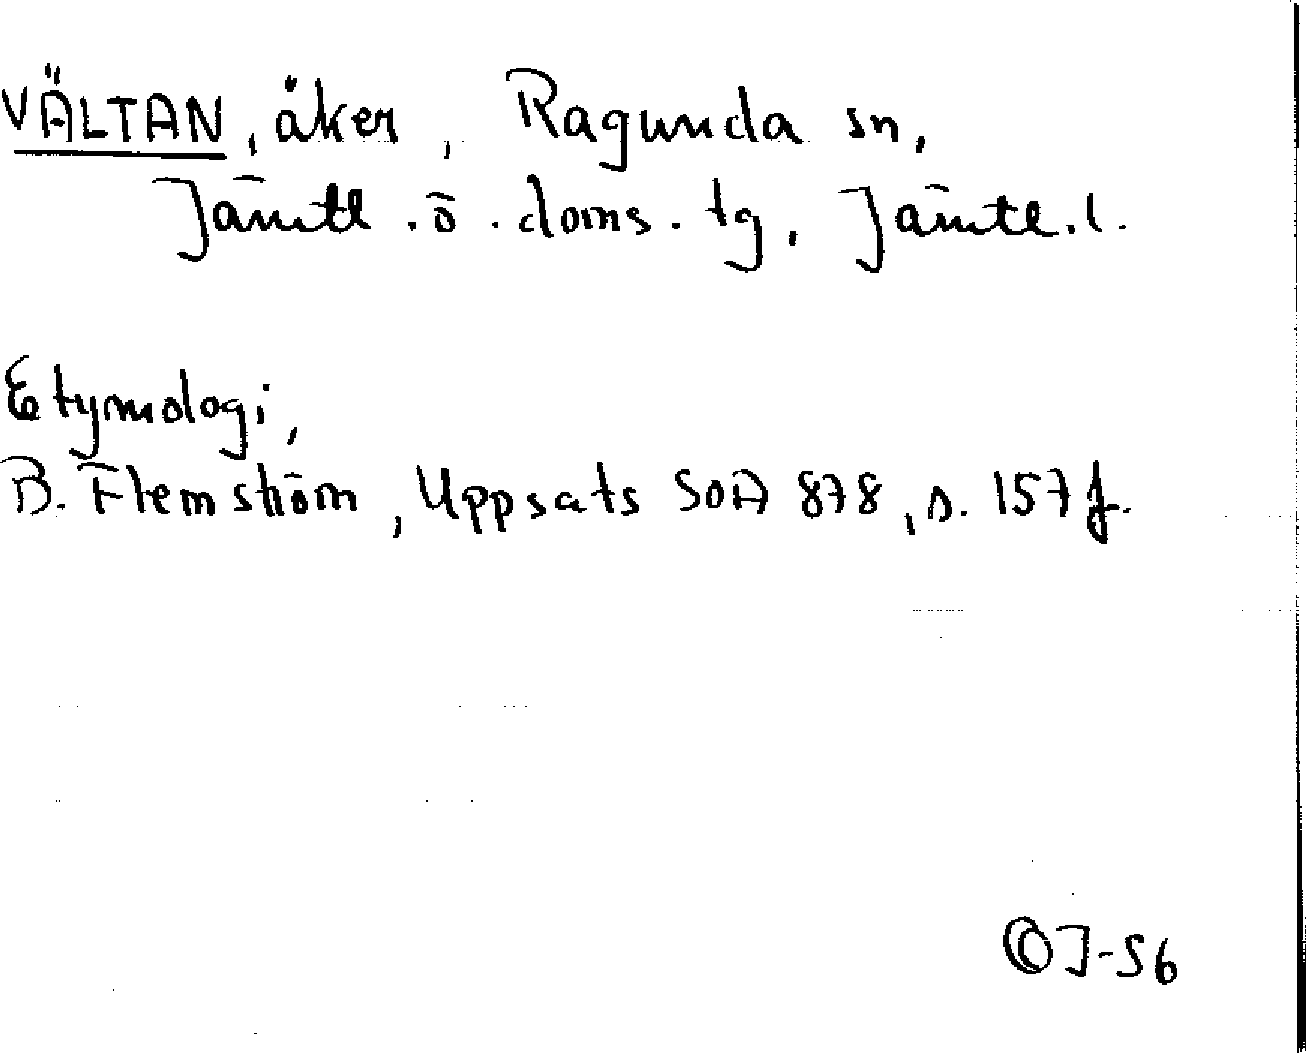 VÄLTAN, åker, Ragunda sn,
Jämtl. ö. doms. tg, Jämtl. l.
Etymologi,
B. Flemström, Uppsats SOA 878, s. 157 f.
©J-56